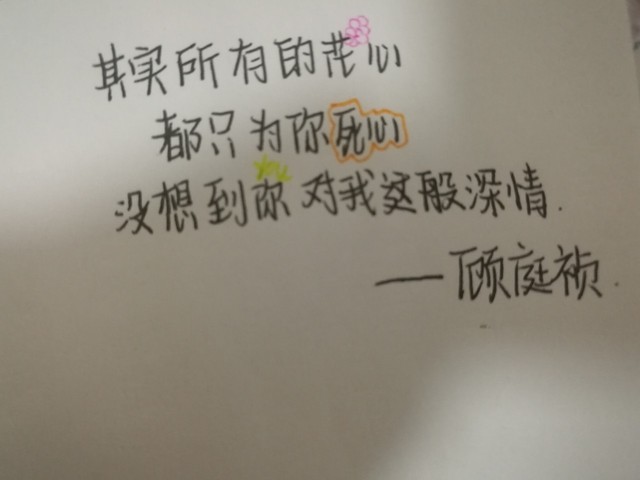 其实所有的花心
都只为你死心
you
没想到你对我这般深情.
——顾庭祯.